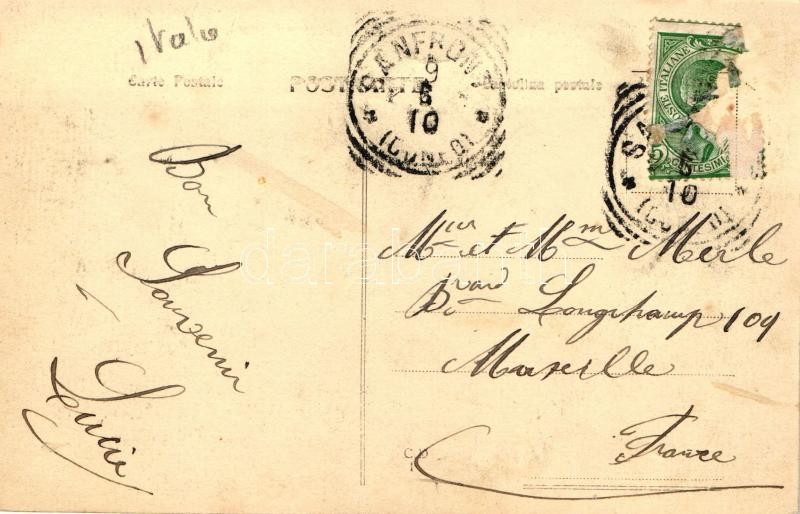 Italie
Carte Postale
POST CARTE
Cartolina postale
SANFRONT
9
6
10
(CUNEO)
POSTE ITALIANE
CENTESIMI
SA
6
10
(CUNEO)
Bon
Souvenir
Lucie
Mr et Mme Merle
Bard Longchamp 109
Marseille
France
darabanth